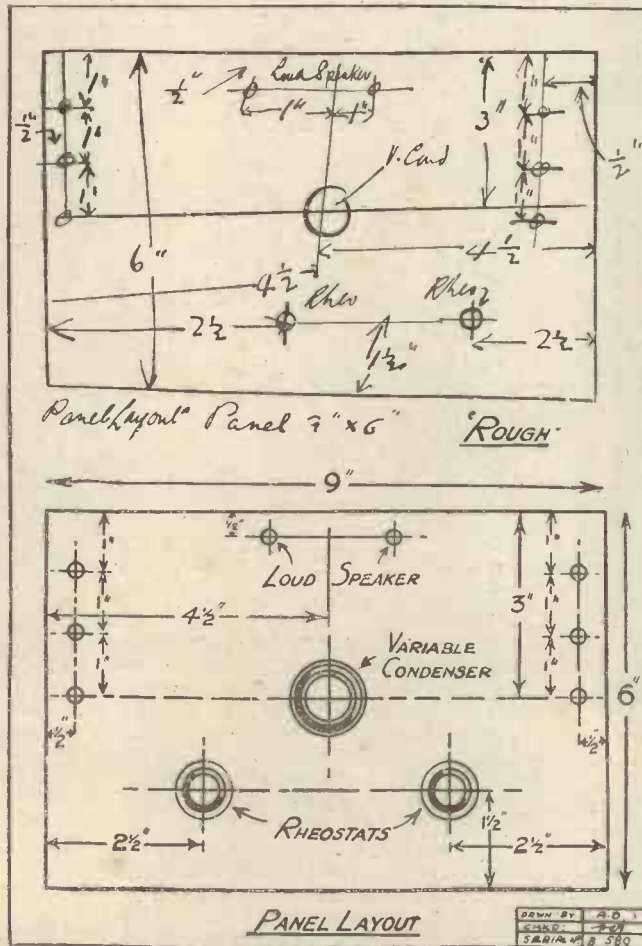 1/2" Loud Speaker
1" 1" 1" 1"
1" 1" 1" 3" 1/2"
1/2" V. Cond
1" 1"
6" 4 1/2
4 1/2 Rheo Rheo
2 1/2 2 1/2
1 1/2"
Panel Layout" Panel 9" x 6" "ROUGH"
9"
1/2"
1" 1"
LOUD SPEAKER
4 1/2" 3"
1" 1"
VARIABLE
CONDENSER
1" 1"
6"
1/2" 1/2"
RHEOSTATS
2 1/2" 1 1/2" 2 1/2"
PANEL LAYOUT
DRWN BY A.O
CHKD:
SERIAL